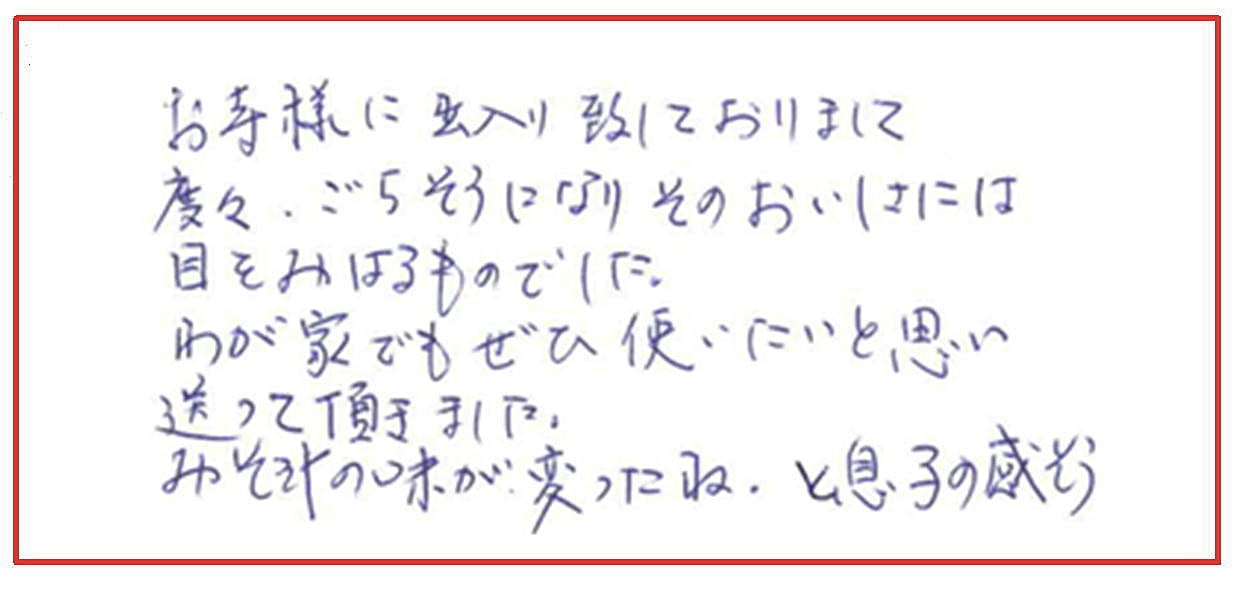 お寺様に出入り致しておりまして
度々、ごちそうになりそのおいしさには
目をみはるものでした。
わが家でもぜひ使いたいと思い
送って頂きました。
みそ汁の味が変ったね。と息子の感そう